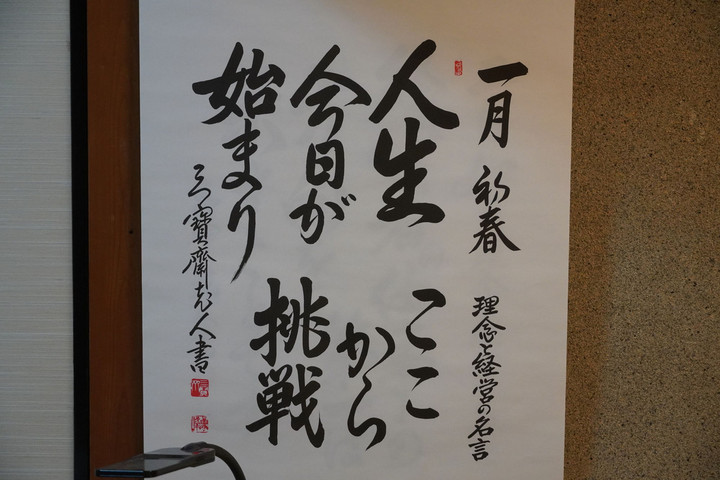 一月 初春 理念と経営の名言
人生
今日が
始まり
ここ
から
挑戦
三寶齋老人書